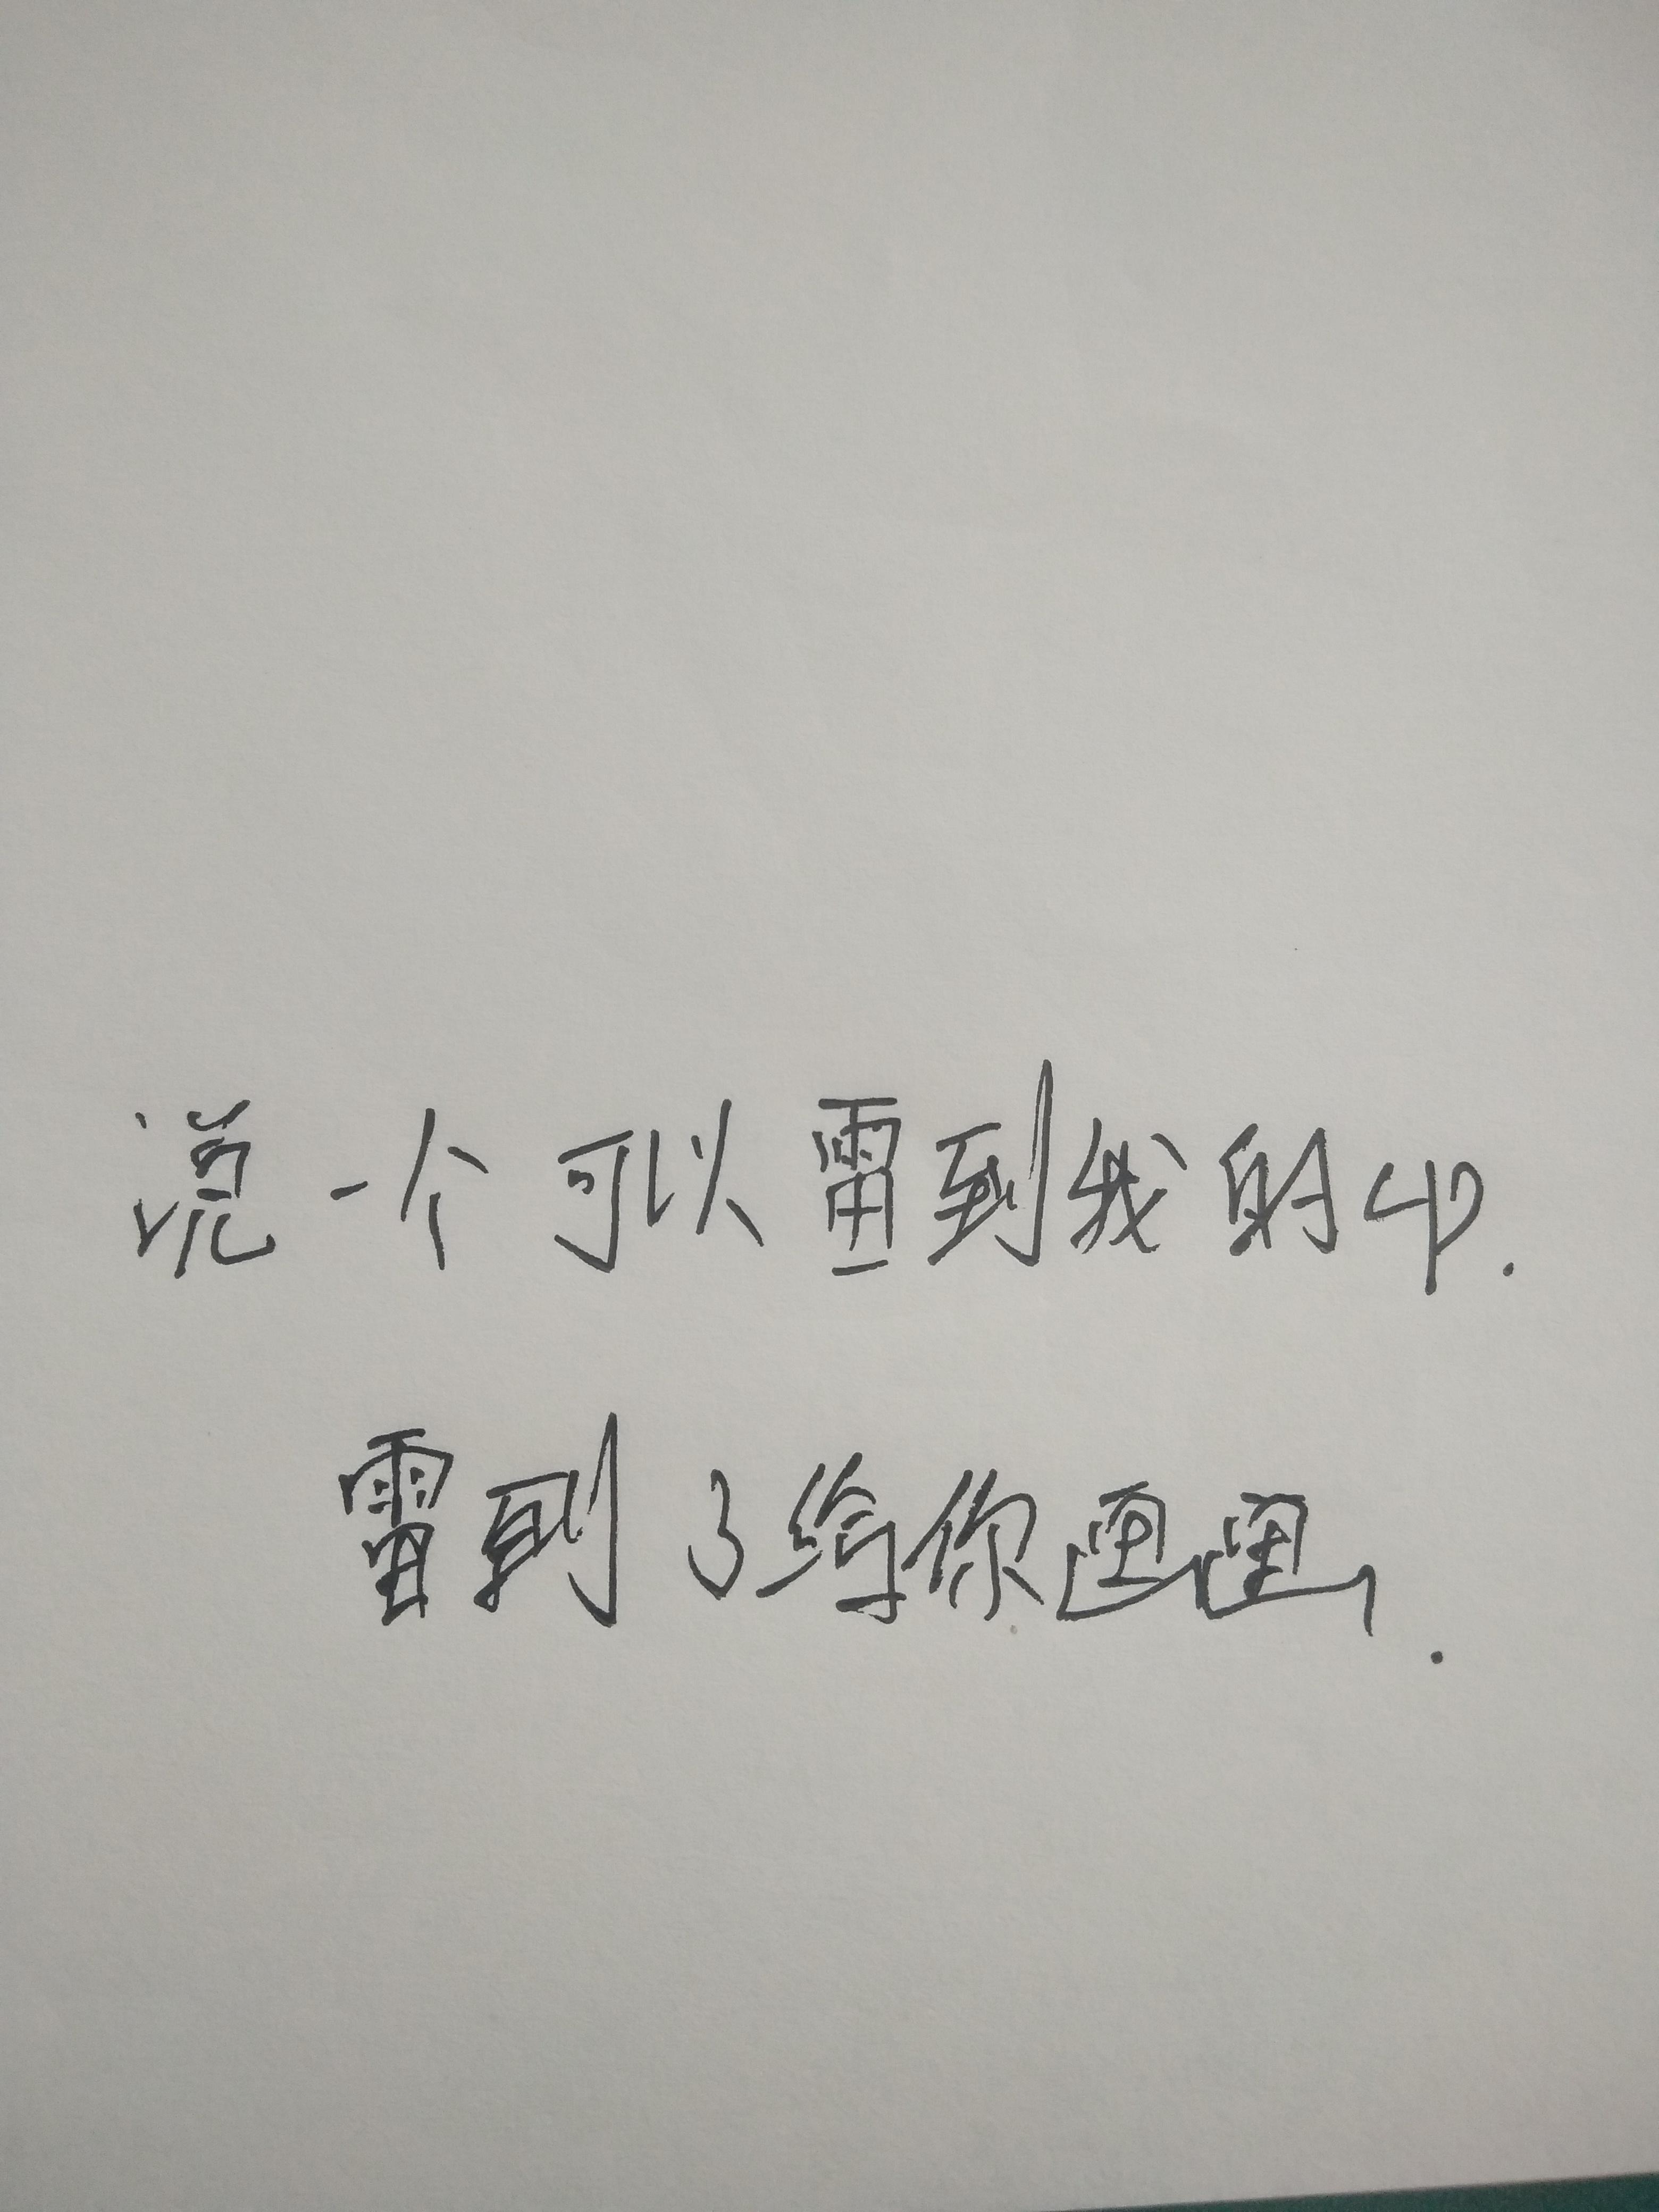 说一个可以雷到我的cp.
雷到了给你画画.